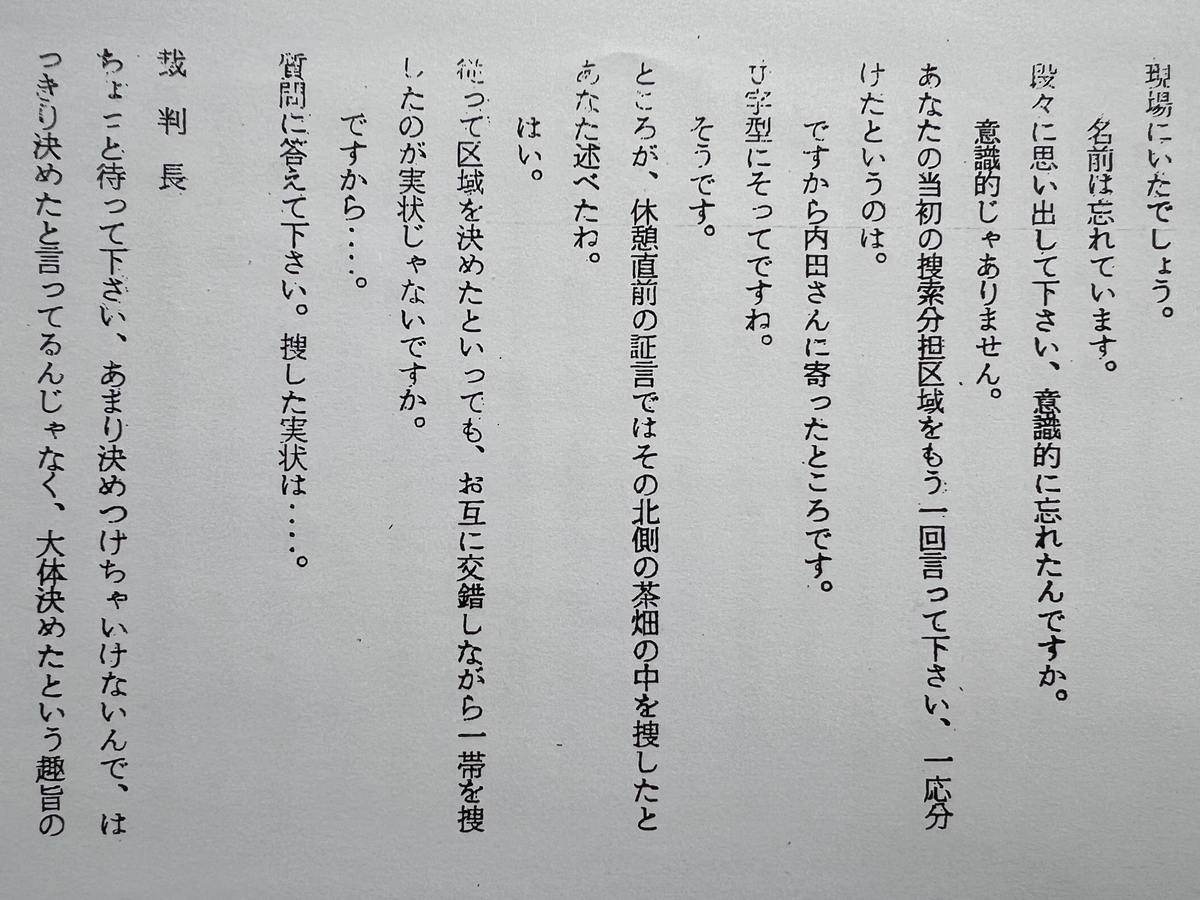 現場にいたでしょう。
名前は忘れています。
段々に思い出して下さい、意識的に忘れたんですか。
意識的じゃありません。
あなたの当初の捜索分担区域をもう一回言って下さい、一応分
けたというのは。
ですから内田さんに寄ったところです。
U字型にそってですね。
そうです。
ところが、休憩直前の証言ではその北側の茶畑の中を捜したと
あなた述べたね。
はい。
従って区域を決めたといっても、お互に交錯しながら一帯を捜
したのが実状じゃないですか。
ですから‥‥。
質問に答えて下さい。捜した実状は‥‥。
裁判長
ちょっと待って下さい、あまり決めつけちゃいけないんで、は
っきり決めたと言ってるんじゃなく、大体決めたという趣旨の